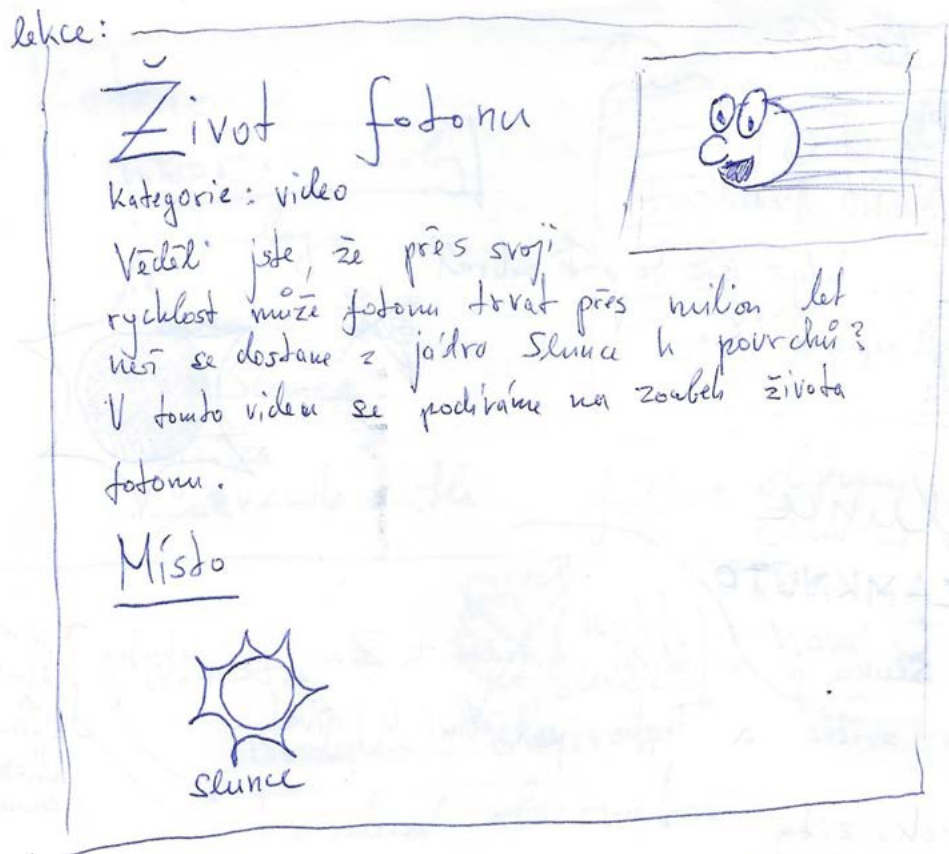 lekce:
Život fotonu
Kategorie: video
Věděli jste, že přes svoji
rychlost může fotonu trvat přes milion let
než se dostane z jádro Slunce k povrchů?
V tomto videu se podíváme na zoubek života
fotonu.
Místo
Slunce